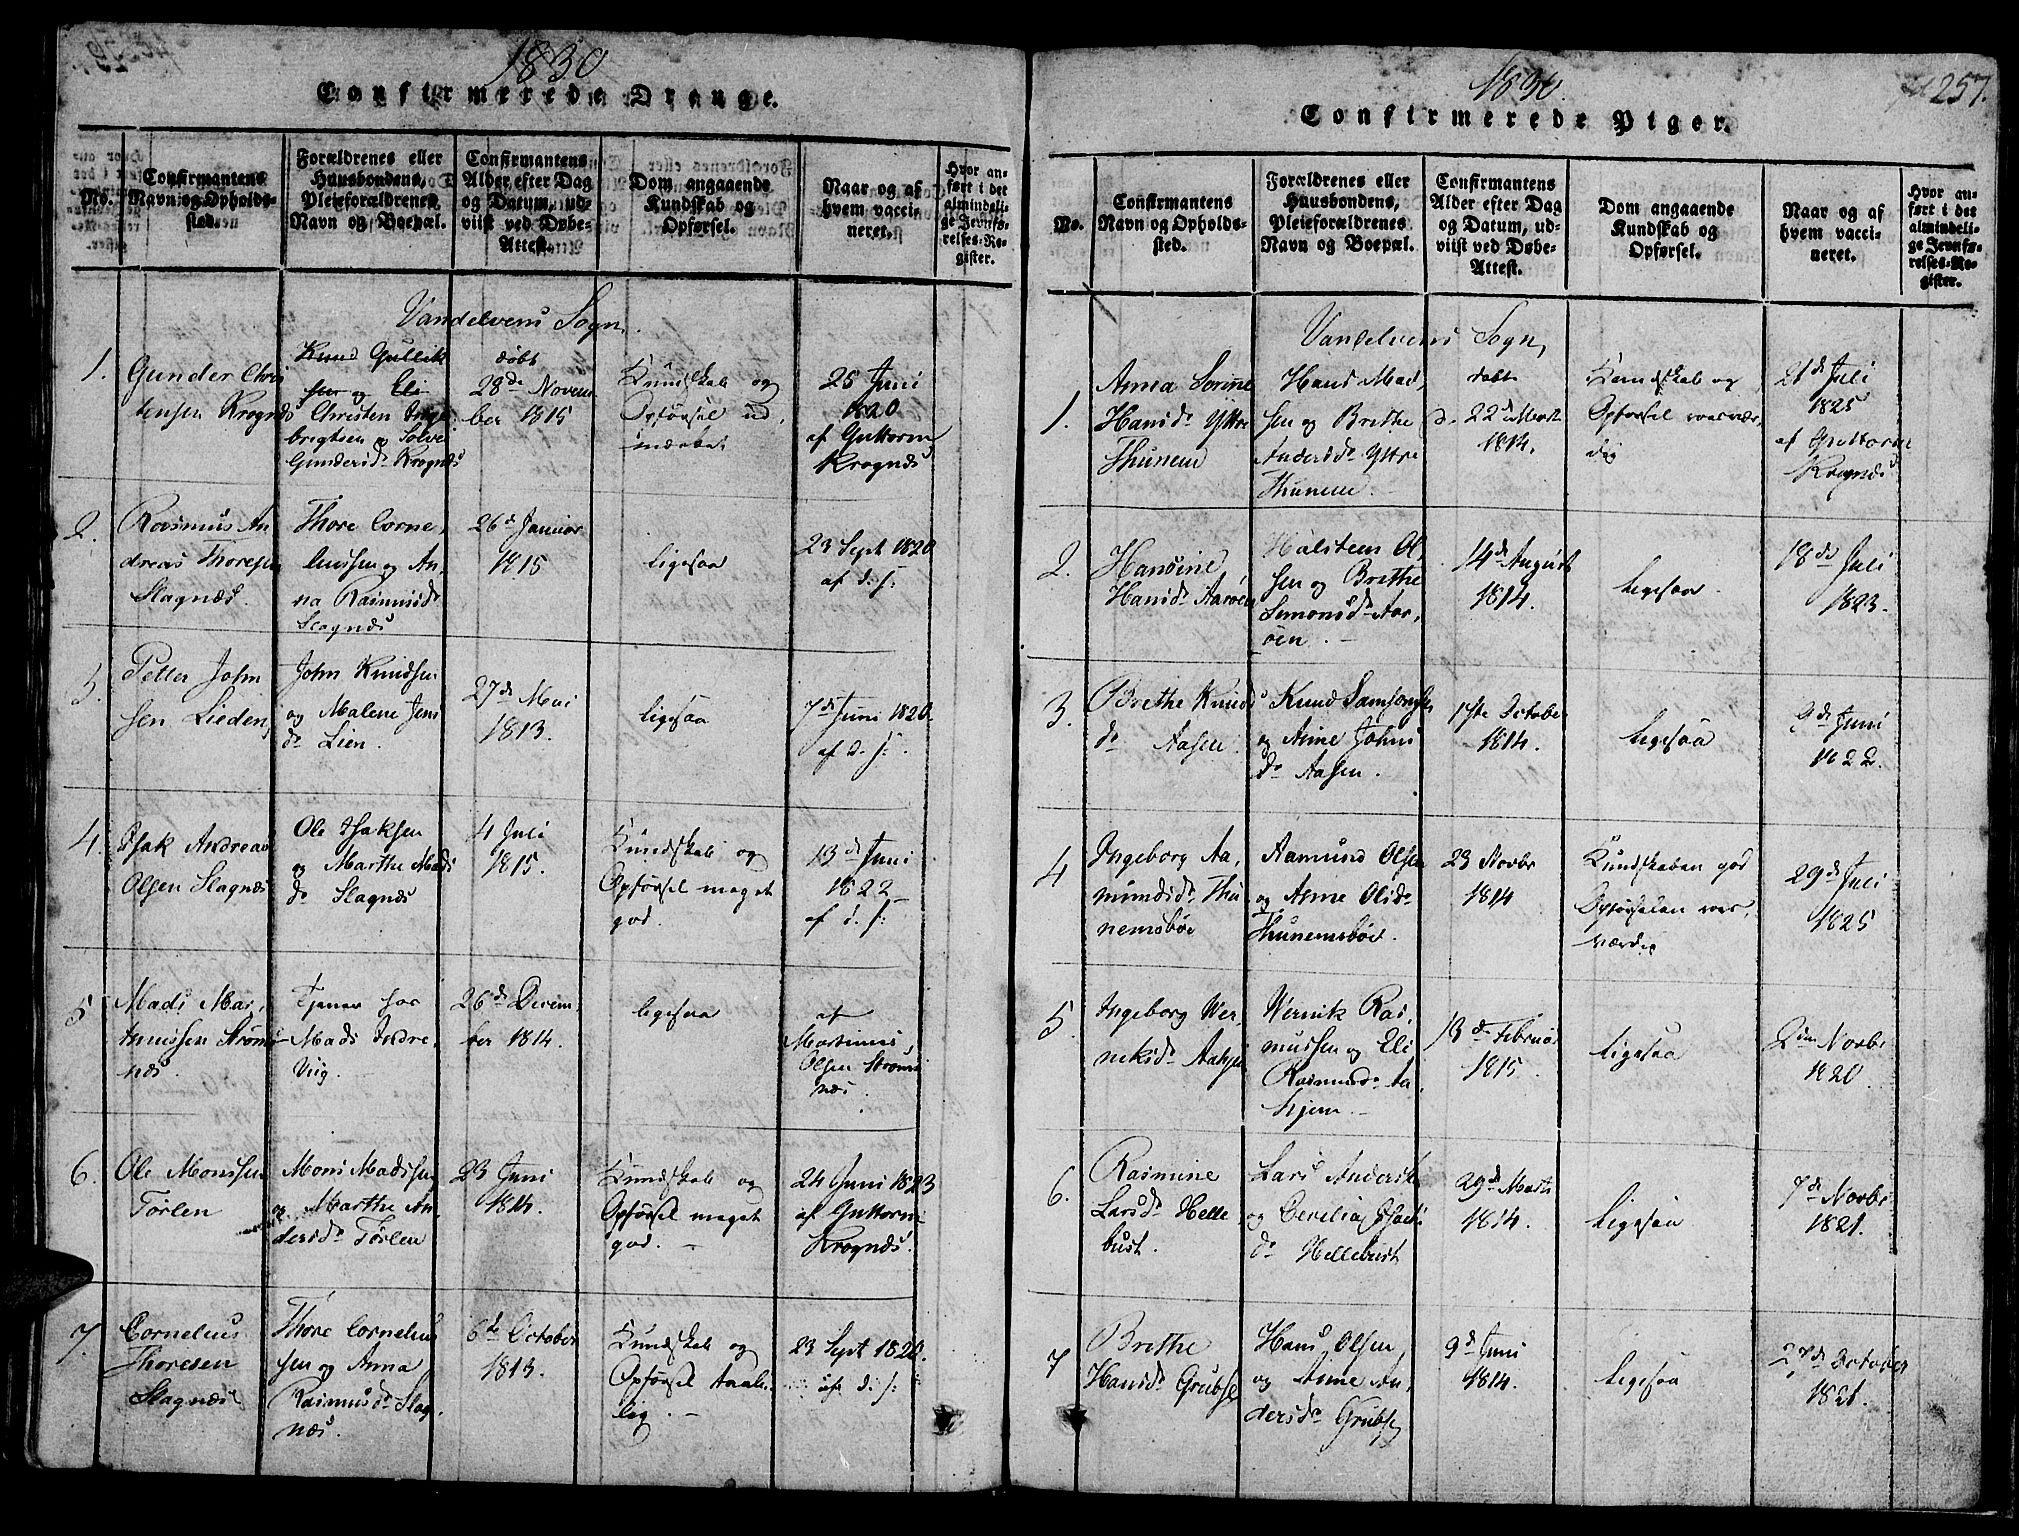 1830
Confirmerede Drenge.
No.
Confirmantens
Navn og Opholds-
sted.
Forældrenes eller
Huusbondens,
Pleieforældrenes
Navn og Boepæl.
Confirmantens
Alder efter Dag
og Datum, ud-
viist ved Døbe-
Attest.
Dom angaaende
Kundskab og
Opførsel.
Naar og af
hvem vacci-
neret.
Hvor an-
ført i det
almindeli-
ge Jevnfø-
relses-Re-
gister.
Vandelvens Sogn.
1.
Gunder Chris
tensen Krognæs
Knud Gullik
sen og Eli
Christen Inge
brigtsen og Solve
Gundersdr Krognæs
døbt
28de Novem
ber 1815
Kundskab og
Opførsel ud
mærket
25 Juni
1820
af Guttorm
Krognæs
2.
Rasmus An
dreas Thoresen
Slagnæs.
Thore Corne,
liussen og An,
na Rasmusdr
Slagnæs
26d Januar
1815
ligesaa
23 Sept 1820
af d. s:
3.
Petter John
sen Lieden,
John Knudsen
og Malene Jens
dr Lien.
27de Mai
1813.
ligesaa
7de Juni 1820.
af d. s:
4.
Isak Andreas
Olsen Slagnæs
Ole Isaksen
og Marthe Mads
dr Slagnæs
4 Juli
1815.
Kundskab og
Opførsel meget
god.
13de Juni
1822
af d. s:
5
Mads Mar,
thinussen Strøms
næs.
Tjener hos
Mads Indre,
Viig.
26de Decem,
ber 1814.
ligesaa
af
Martinus
Olsen Strøms
næs.
6.
Ole Monssen
Torlen
Mons Madssen
og Marthe An,
dersdr Torlen
23 Juni
1814.
Kundskab og
Opførsel meget
god.
24 Juni 1823
af Guttorm
Krognæs.
7.
Cornelius
Thoresen
Slagnæs
Thore Cornelius
sen og Anna
Rasmusdr Slag
næs.
6de October
1813.
Kundskab og
Opførsel taale
lig.
23 Sept 1820.
af d. s:
1830.
257.
Confirmerede Piger.
No.
Confirmantens
Navn og Opholds-
sted.
Forældrenes eller
Huusbondens,
Pleieforældrenes
Navn og Boepæl.
Confirmantens
Alder efter Dag
og Datum, ud-
viist ved Døbe-
Attest.
Dom angaaende
Kundskab og
Opførsel.
Naar og af
hvem vacci-
neret.
Hvor an-
ført i det
almindeli-
ge Jevnfø-
relses-Re-
gister.
Vandelvens Sogn,
1.
Anna Lorine
Hansdr Yttre
Thunem
Hans Mad,
sen og Brethe
Andersdr Yttre
Thunem.
døbt
d. 22de Marts
1814.
Kundskab og
Opførsel roesvær
dig
21de Juli
1825
af Guttorm
Krognæs
2.
Hansine
Hansdr Aarøen
Halsteen Ol
sen og Brethe
Simonsdr Aar,
øen.
14de August
1814.
ligesaa.
18de Juli
1823.
3.
Brethe Knuds
dr Aasen.
Knud Samsonsen
og Anne Johns
dr Aasen.
1ste October
1814.
ligesaa
9de Juni
1822.
4
Ingeborg Aa,
mundsdr Thu
nemsbøe
Aamund Olsen
og Anne Olsdr
Thunemsbøe.
23 Novbr
1814
Kundskaben god
Opførselen roes,
værdig
29de Juli
1825
5.
Ingeborg Wer,
neksdr Aahjem
Wernik Ras,
mussen og Eli
Rasmusdr Aa
hjem.
13de Februar
1815.
ligesaa
2den Novbr
1820.
6.
Rasmine
Larsdr Helle,
bust.
Lars Anders
og Cecelia Isach
dr Hellebust
29de Marts
1814.
ligesaa
7de Novbr
1821.
7
Brethe
Hansdr Grubse
Hans Olsen,
og Anne An,
dersdr Grubse
9de Juni
1814.
ligesaa
27de October
1821.